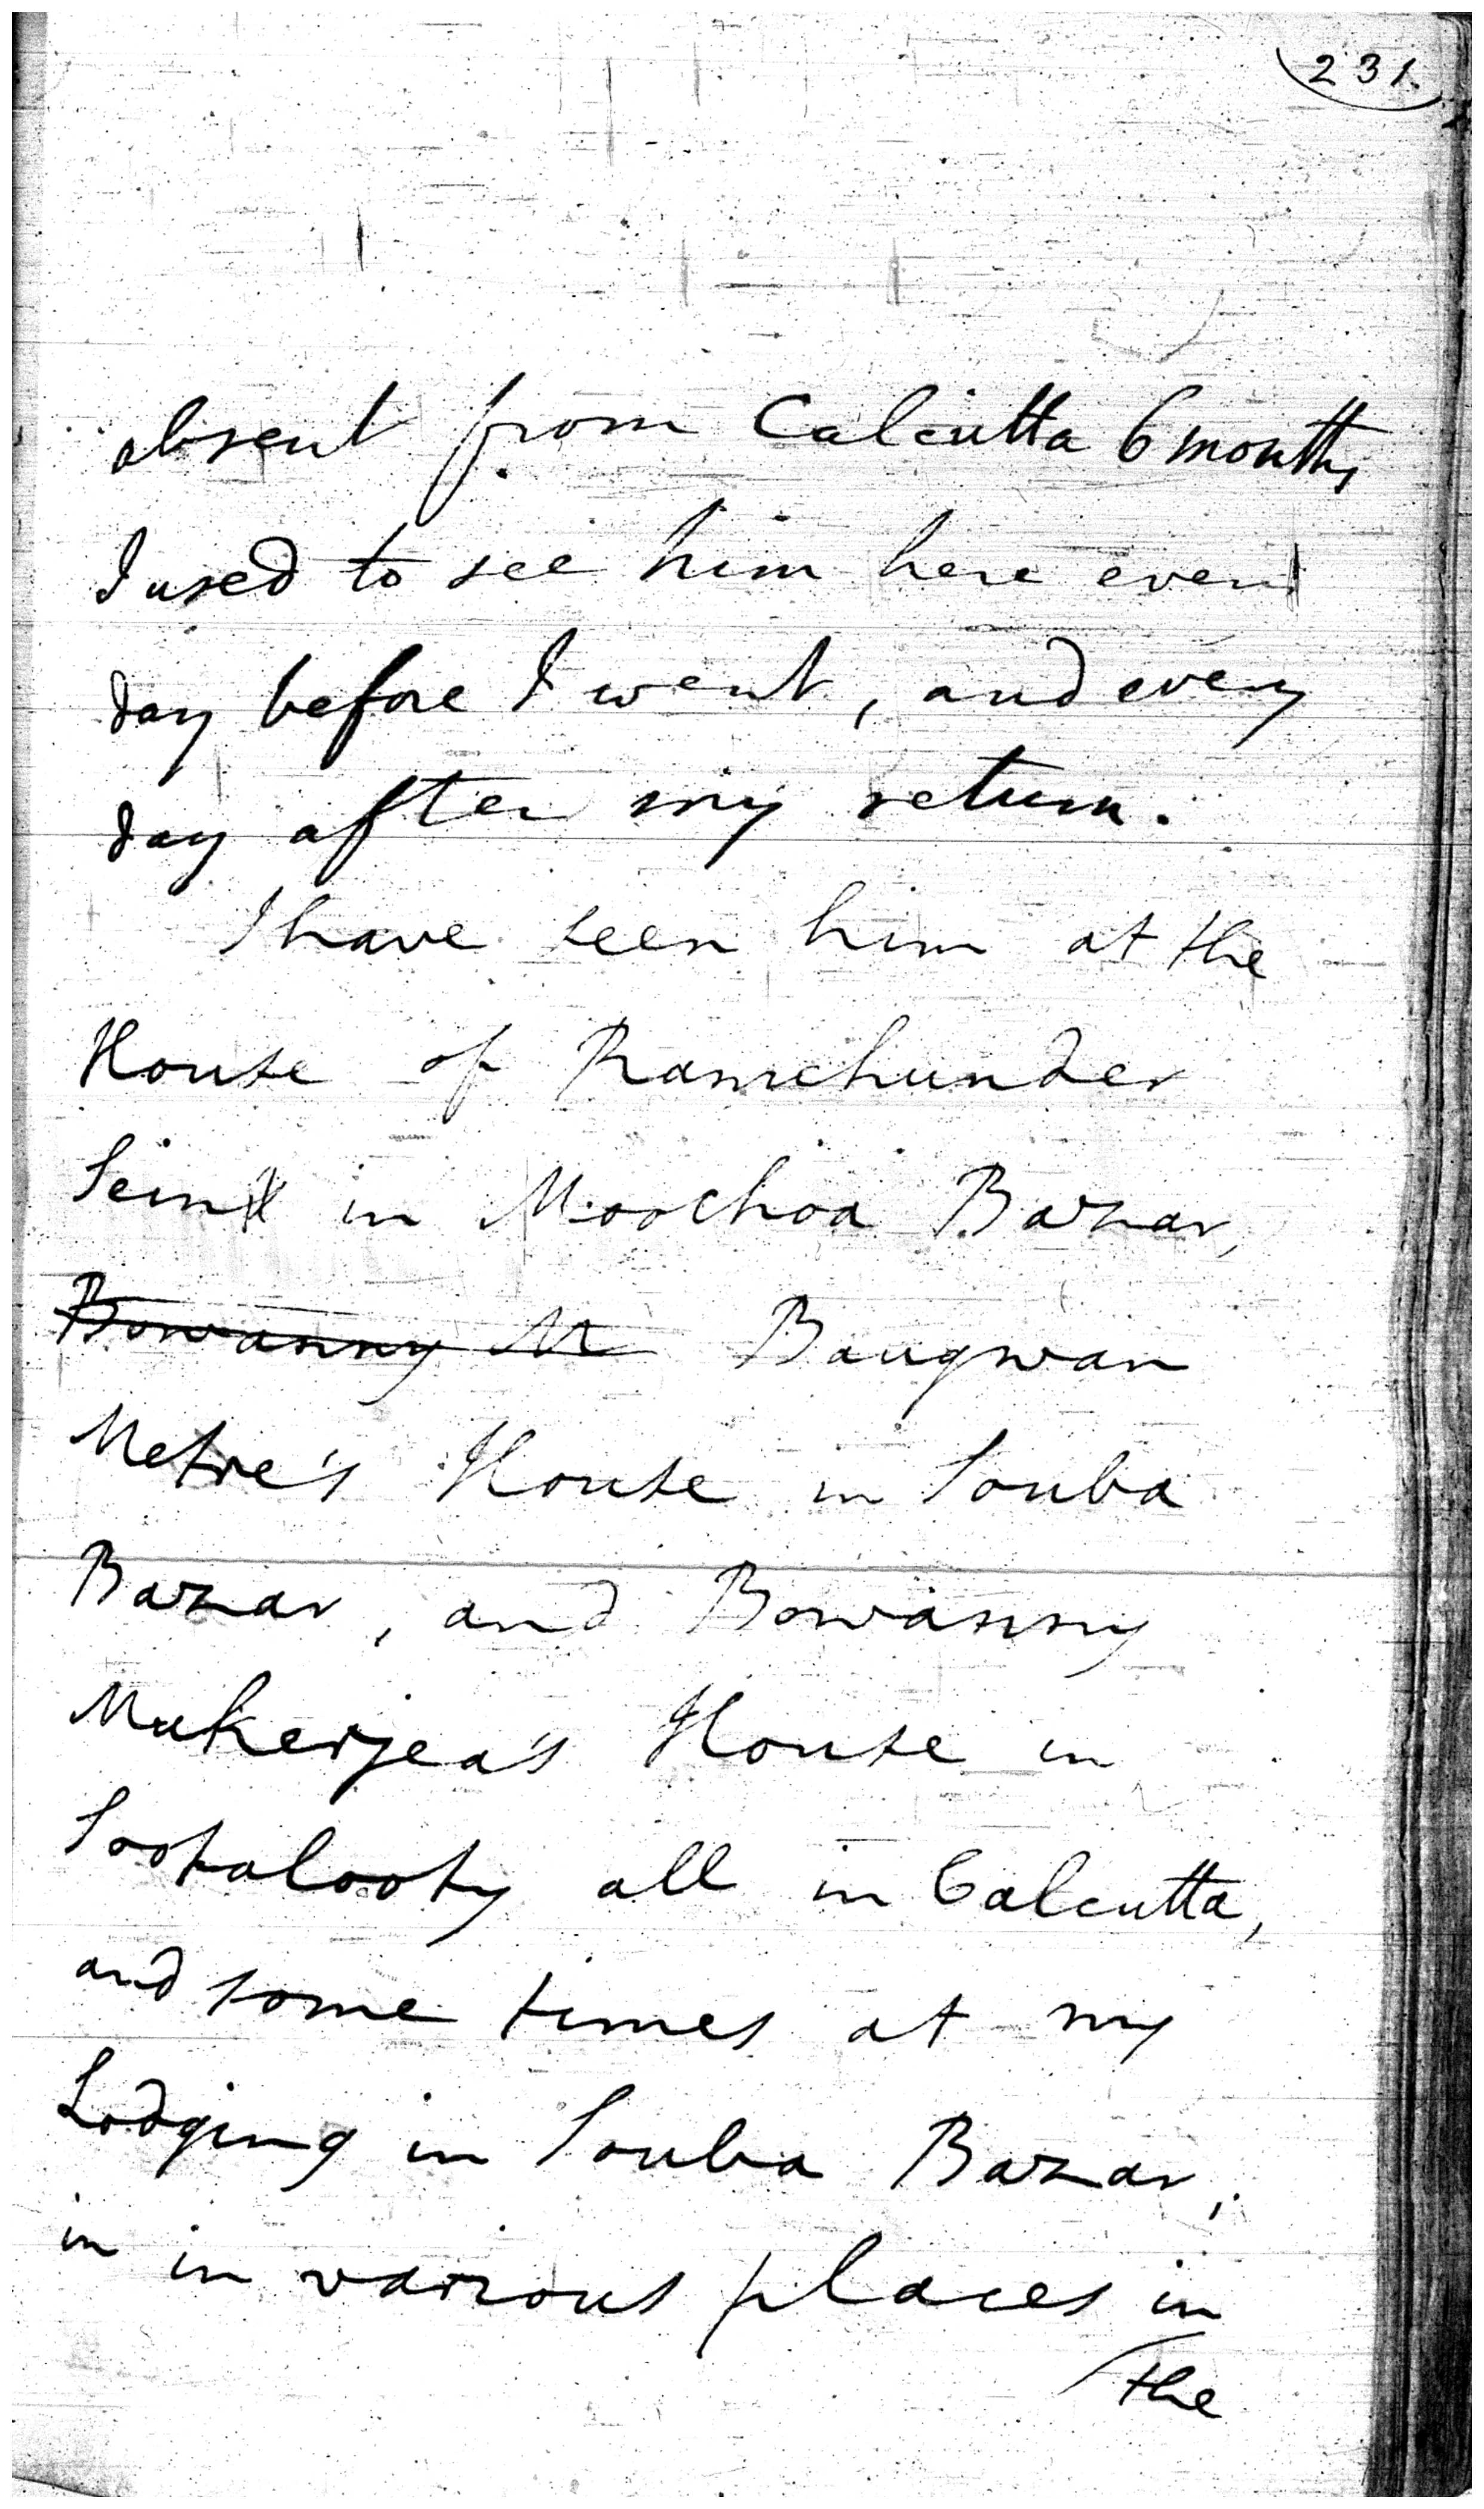 231.
absent from Calcutta 6 months
I used to see him here every
day before I went, and every
day after my return.
I have seen him at the
House of Ramchunder
Sein in Moochoa Bazar,
Bowanny M Baugwan
Metre's House in Souba
Bazar, and Bowanny
Mukerjea's House in
Sootalooty all in Calcutta,
and some times at my
Lodging in Souba Bazar,
in in various places in
the